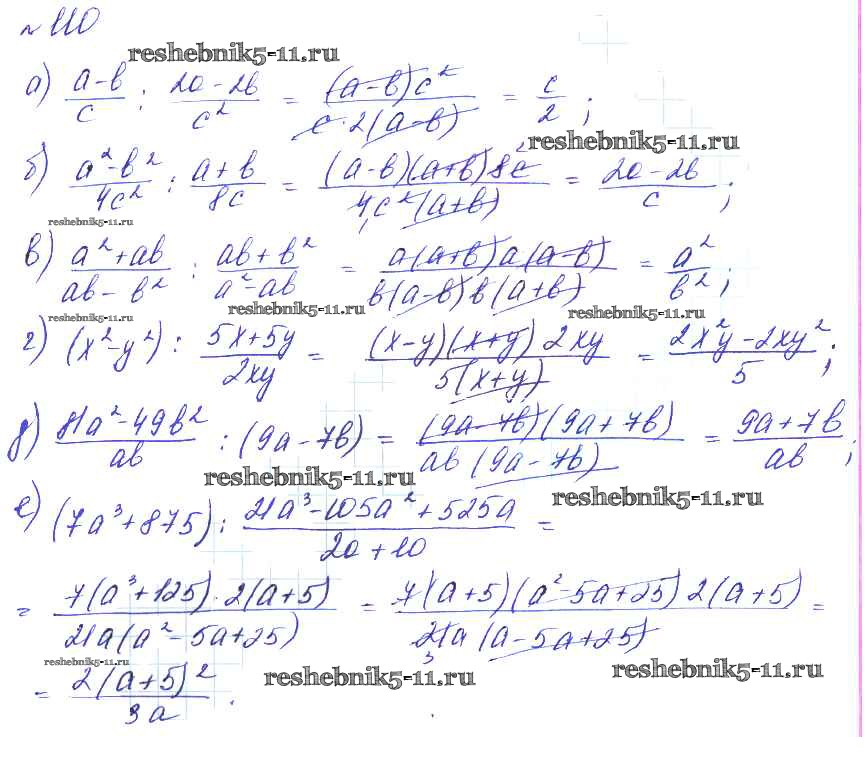 № 110
reshebnik5-11.ru
а) (a-b)/c : (2a-2b)/c² = ((a-b)c²)/(c·2(a-b)) = c/2 ;
reshebnik5-11.ru
б) (a²-b²)/4c² : (a+b)/8c = ((a-b)(a+b)8c 2)/(4c²(a+b) 1) = (2a-2b)/c ;
reshebnik5-11.ru
в) (a²+ab)/(ab-b²) : (ab+b²)/(a²-ab) = (a(a+b)a(a-b))/(b(a-b)b(a+b)) = a²/b² ;
reshebnik5-11.ru reshebnik5-11.ru reshebnik5-11.ru
г) (x²-y²) : (5x+5y)/2xy = ((x-y)(x+y)2xy)/(5(x+y)) = (2x²y-2xy²)/5 ;
д) (81a²-49b²)/ab : (9a-7b) = ((9a-7b)(9a+7b))/(ab(9a-7b)) = (9a+7b)/ab ;
reshebnik5-11.ru reshebnik5-11.ru
е) (7a³+875) : (21a³-105a²+525a)/(2a+10) =
= (7(a³+125)·2(a+5))/(21a(a²-5a+25)) = (7(a+5)(a²-5a+25)2(a+5))/(21a(a-5a+25) 3) =
reshebnik5-11.ru reshebnik5-11.ru reshebnik5-11.ru
= (2(a+5)²)/3a .